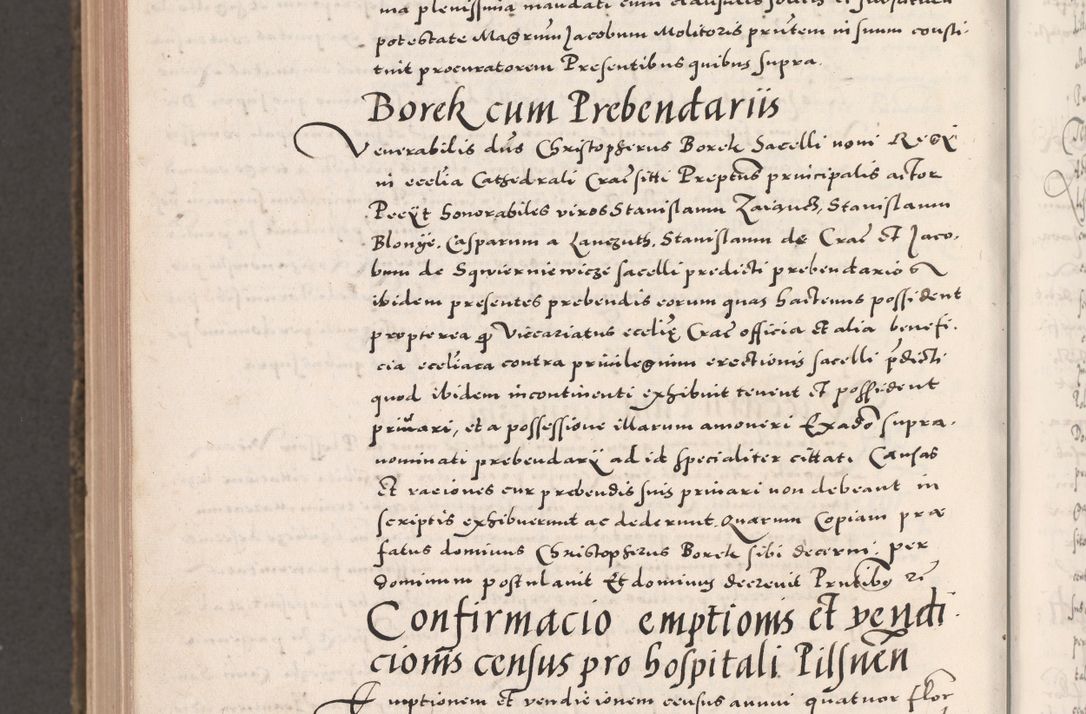 ma plenissima mandati cum clausulis solitis et substituen
potestate Magrum Jacobum Molitoris prntem in suum consti-
tuit procuratorem Presentibus quibus supra.
Borek cum Prebendariis
Venerabilis dns Christopherus Borek Sacelli noni Regy
in ecclia Cathedrali Crac sitti Preptus principalis actor
Stanislaum Stanislaum
honorabiles viros
Blonye, Casparum a Lanczuth, Stanislaum de Crac et Jaco-
bum de Sqwierniewicze sacelli predicti prebendarios
ibidem presentes prebendis eorum quas hactenus possident
propterea q Viccariatus ecclie Crac officia et alia benefi-
cia eccliaca contra privilegium erectionis sacelli pdicti
quod ibidem incontinenti exhibuit tenent et possident
privari, et a possessione illarum amoveri Ex adō supra-
nominati prebendarij ad id specialiter cittati Causas
Et raciones cur prebendis suis privari non debeant in
scriptis exhibuerunt ac dederunt. Quarum Copiam præ
fatus dominus Christopherus Borek sibi decerni per
dominum postulavit Et dominus decrevit Prntibus
Confirmacio emptionis et vendi-
cionis census pro hospitali Pilsnen
Emptionem et vendicionem census annui quatuor flor